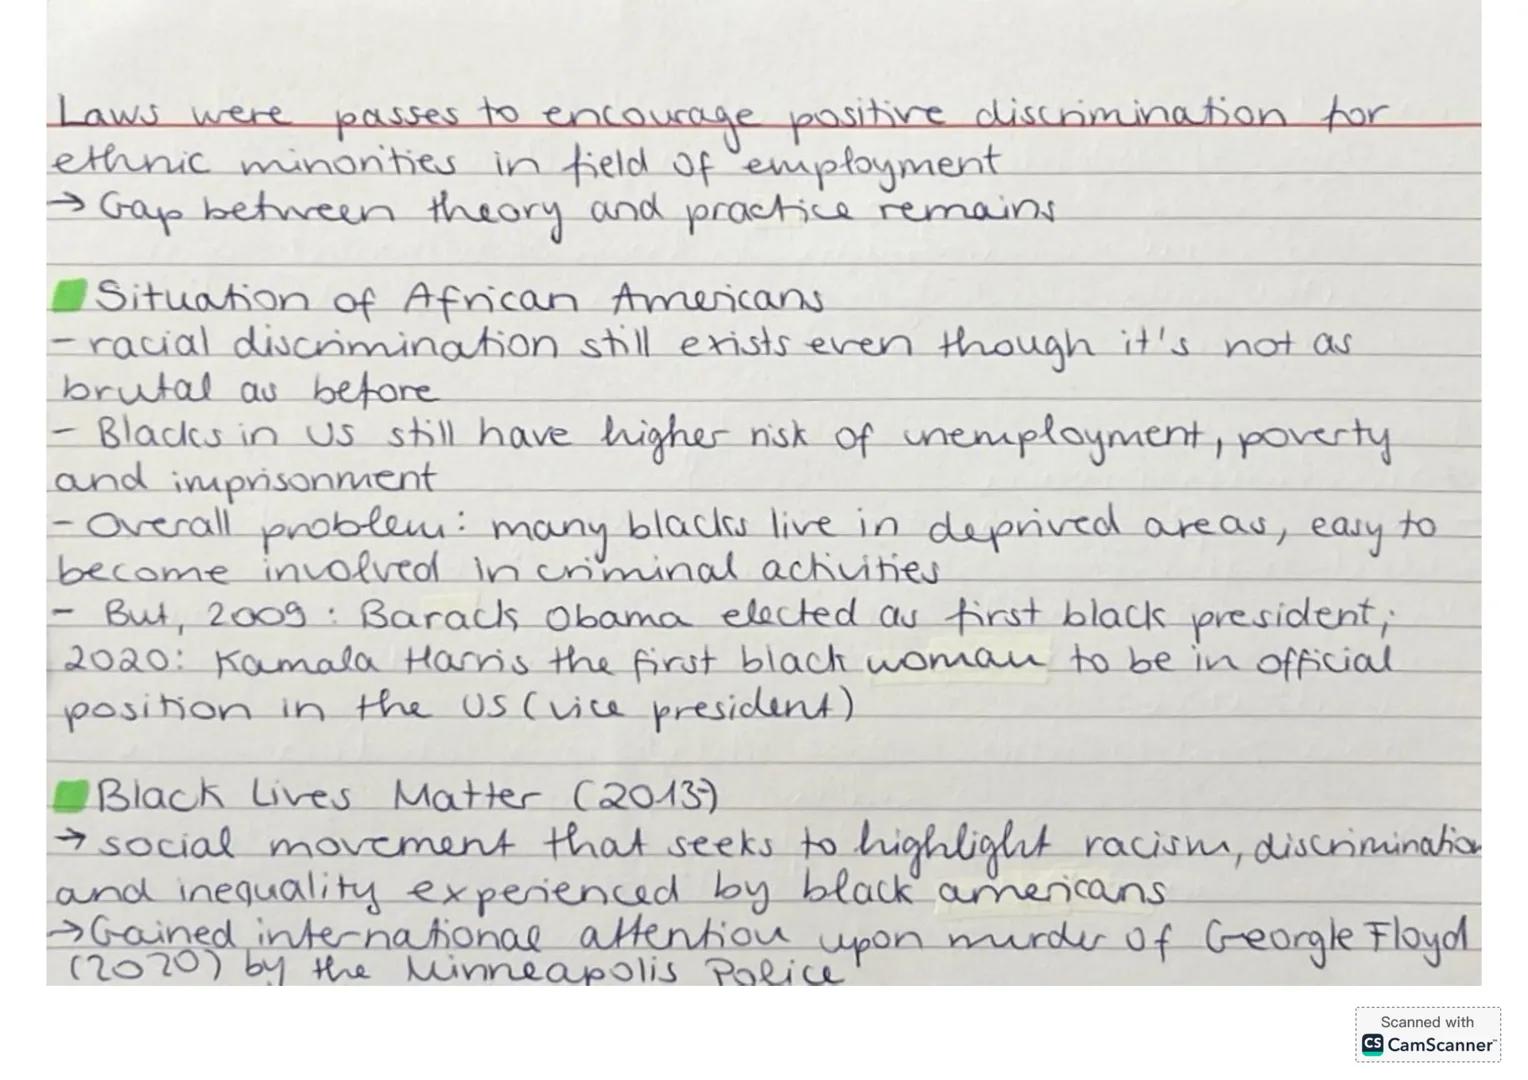 Laws were passes to encourage positive discrimination for
ethnic minorities in field of employment
→ Gap between theory and practice remains
Situation of African Americans
- racial discrimination still exists even though it's not as
brutal as before
- Blacks in US still have higher risk of unemployment, poverty
and imprisonment
- Overall problem: many blacks live in deprived areas, easy to
become involved in criminal activities
- But, 2009: Barack Obama elected as first black president;
2020: Kamala Harris the first black woman to be in official
position in the US (vice president)
Black Lives Matter (2013-)
→ social movement that seeks to highlight racism, discrimination
and inequality experienced by black americans
→ Gained international attention upon murder of Georgle Floyd
(2020) by the Minneapolis Police
Scanned with
CS CamScanner